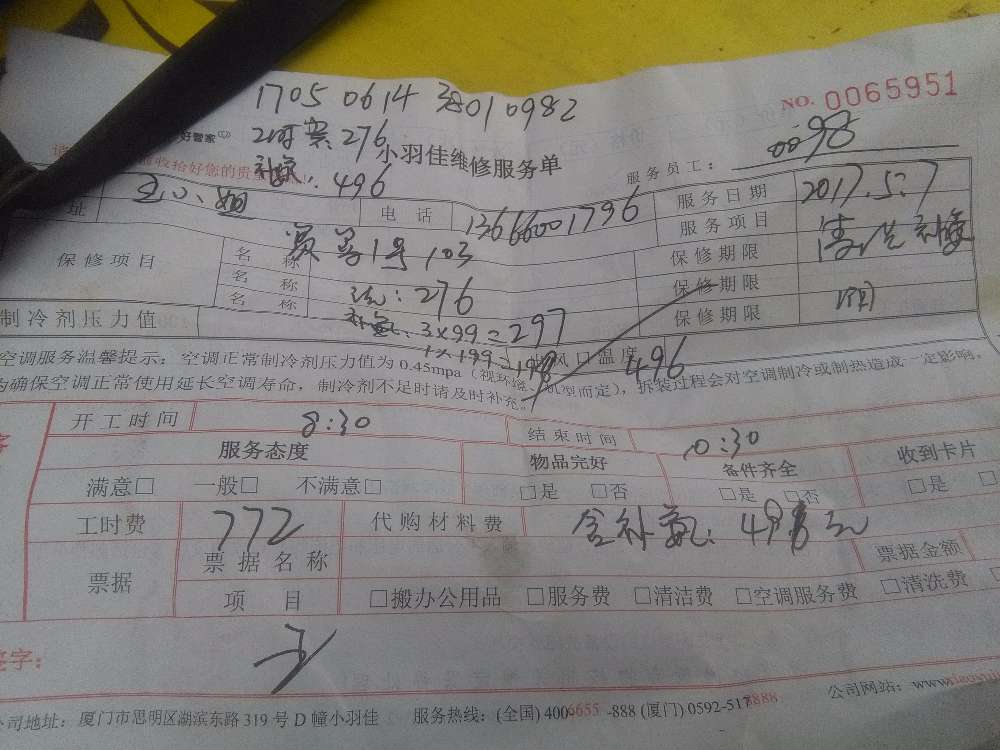 17050614 38010982
NO. 0065951
好管家
276
小羽佳维修服务单
收拾好您的贵
496
服务员工: 0098
址
电话 13666001796
服务日期 2017.5.7
服务项目
保修项目
名称 1号103
保修期限
名称 276
保修期限
名称 补氟: 3×99=297
保修期限
制冷剂压力值
1×199=199
风口温度 496
空调服务温馨提示: 空调正常制冷剂压力值为 0.45mpa (视环境、机型而定), 拆装过程会对空调制冷或制热造成一定影响,
为确保空调正常使用延长空调寿命, 制冷剂不足时请及时补充。
开工时间 8:30
结束时间 10:30
服务态度
物品完好
备件齐全
收到卡片
满意□ 一般□ 不满意□
□是 □否
□是 □否
□是
工时费 772
代购材料费 含补氟: 496元
票据
票据名称
票据金额
项目
□搬办公用品 □服务费 □清洁费 □空调服务费 □清洗费
签字:
王
公司地址: 厦门市思明区湖滨东路 319 号 D 幢小羽佳
服务热线: (全国) 400-6655-888 (厦门) 0592-5178888
公司网站: www.xiaoyu